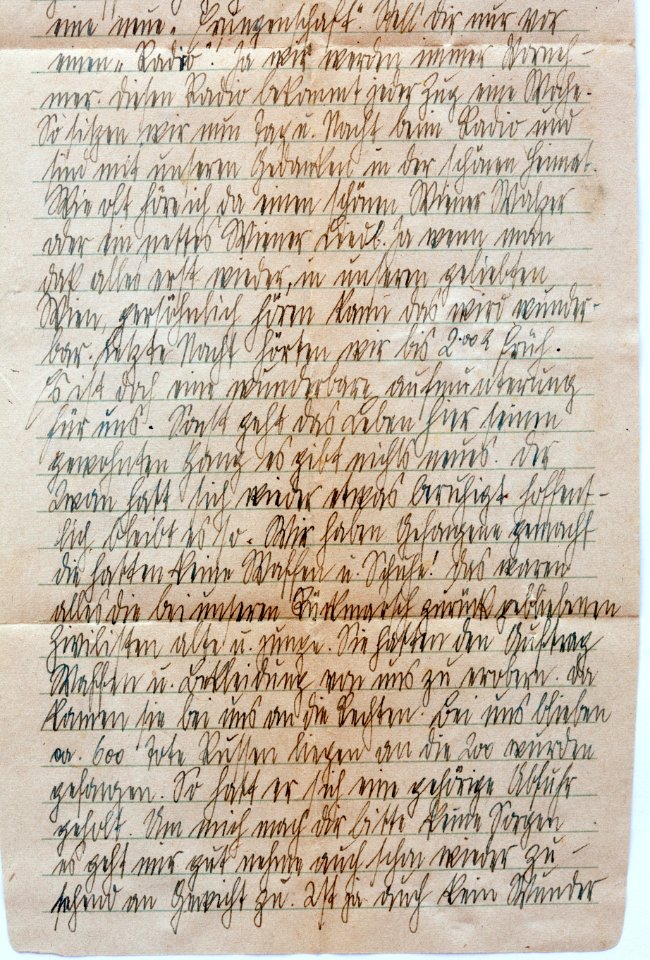 eine neue „Errungenschaft". Stell dir nur vor
einen „Radio". Ja wir werden immer Vorneh-
mer. Diesen Radio bekommt jeder Zug eine Woche.
So sitzen wir nun Tag u. Nacht beim Radio und
sind mit unseren Gedanken in der schönen Heimat.
Wie oft höre ich da einen schönen Wiener Walzer
oder ein nettes Wiener Liedl. Ja wenn man
das alles erst wieder, in unseren geliebten
Wien, persöhnlich hören kann das wird wunder-
bar. Letzte Nacht hörten wir bis 2.00 h früh.
Es ist doch eine wunderbare aufmunterung
für uns. Sonst geht das Leben hier seinen
gewohnten Gang es gibt nichts neues. Der
Iwan hatt sich wieder etwas beruhigt hoffent-
lich bleibt es so. Wir haben Gefangene gemacht
die hatten keine Waffen u. Schuhe! Das waren
alles die bei unseren Rückmarsch zurück gebliebenen
Zivilisten alte u. junge. Sie hatten den Auftrag
Waffen u. Bekleidung von uns zu erobern. Da
kamen sie bei uns an die Rechten. Bei uns blieben
ca. 600 Tote Russen liegen an die 200 wurden
gefangen. So hatt er sich eine gehörige Abfuhr
geholt. Um mich mach dir bitte keine Sorgen
es geht mir gut nehme auch schon wieder zu-
sehend an Gewicht zu. Ist ja auch kein Wunder